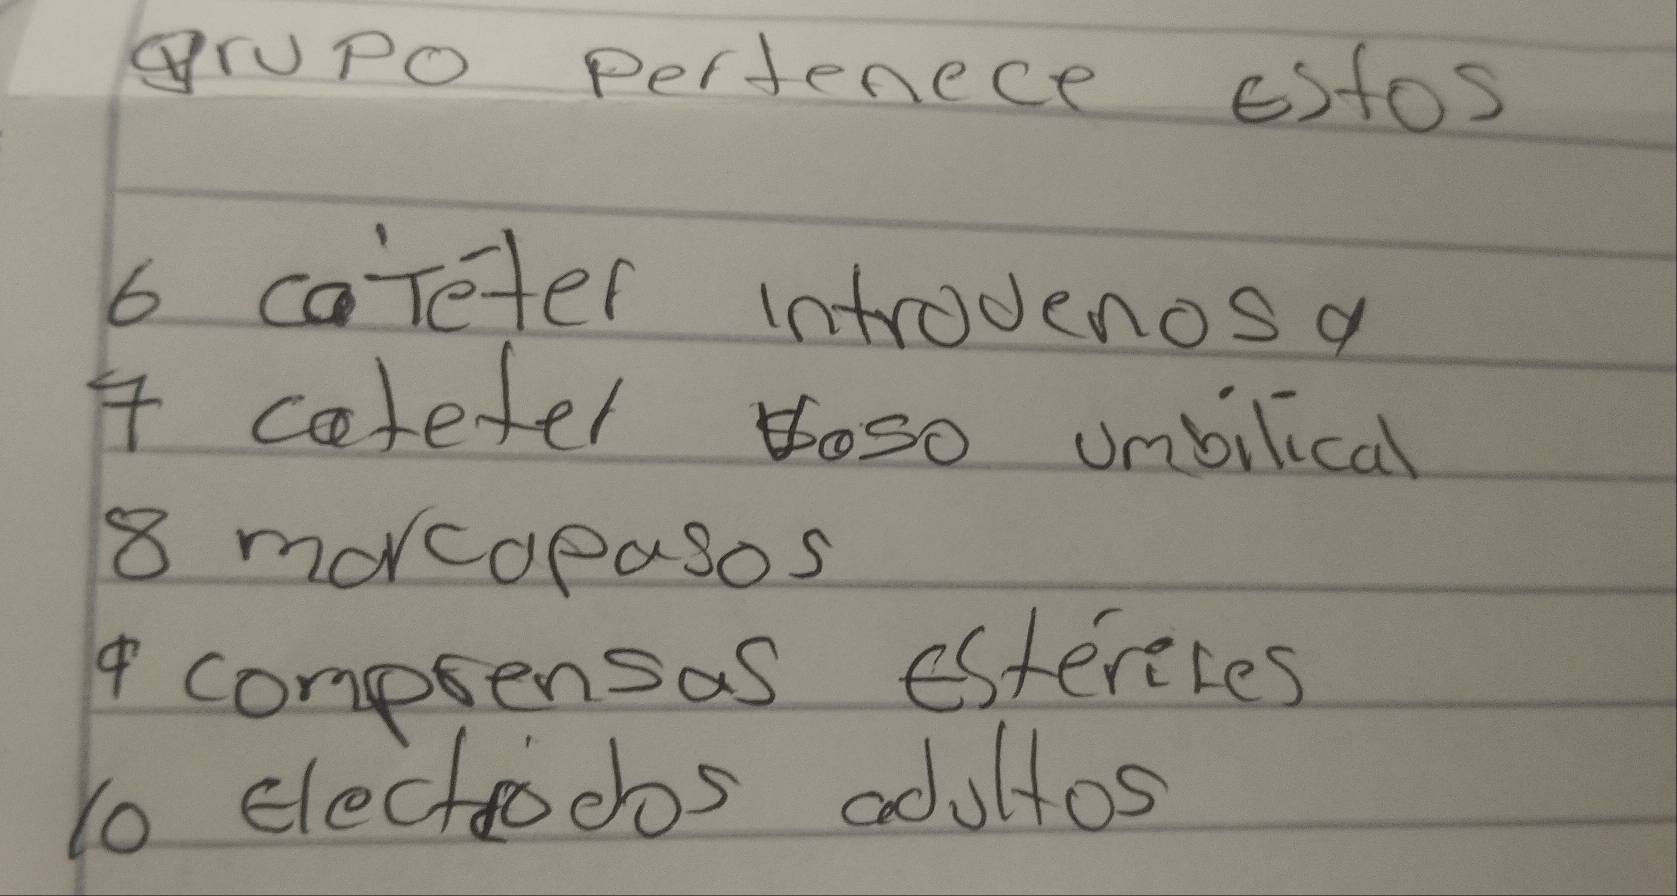 grupo pertenece estos
6 catéter introvenosa
7 cateter boso umbilical
8 marcapasos
9 comprensas estériles
10 electrodos adultos